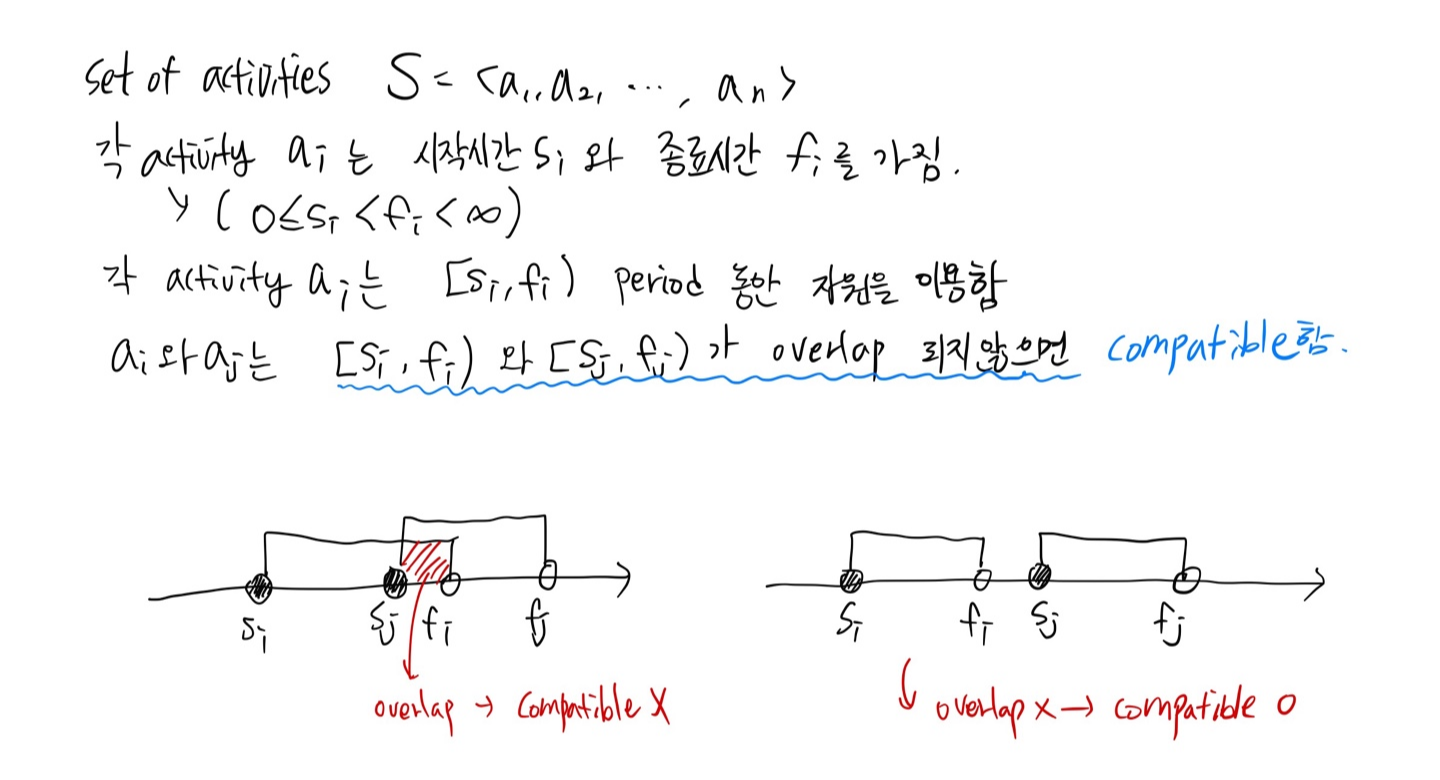 set of activities S = <a₁, a₂, ..., aₙ>
각 activity aᵢ는 시작시간 sᵢ와 종료시간 fᵢ를 가짐.
↳ (0≤sᵢ<fᵢ<∞)
각 activity aᵢ는 [sᵢ, fᵢ) period 동안 자원을 이용함
aᵢ와 aⱼ는 [sᵢ, fᵢ) 와 [sⱼ, fⱼ)가 overlap 되지 않으면 compatible함.
sᵢ sⱼ fᵢ fⱼ
overlap → compatible X
sᵢ fᵢ sⱼ fⱼ
overlap x → compatible O